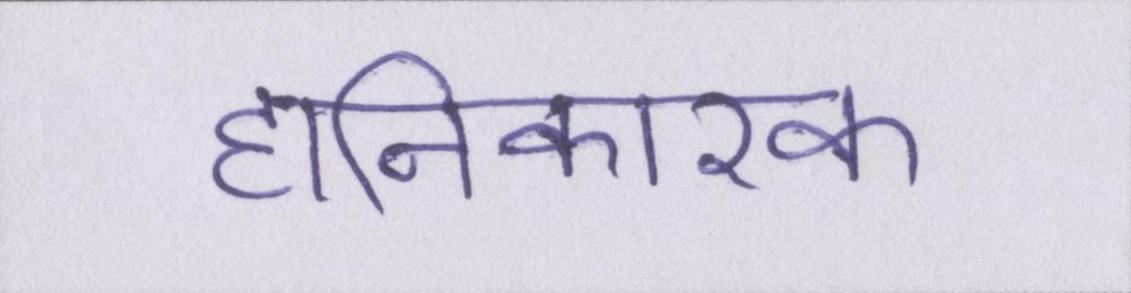 हानिकारक